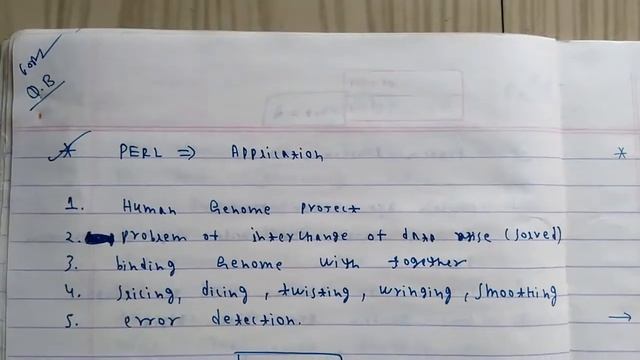 Q.B
* PERL ⇒ Application *
1. Human Genome project
2. problem of interchange of data arise (solved)
3. binding Genome with together
4. slicing, dicing, twisting, wringing, smoothing
5. error detection. →